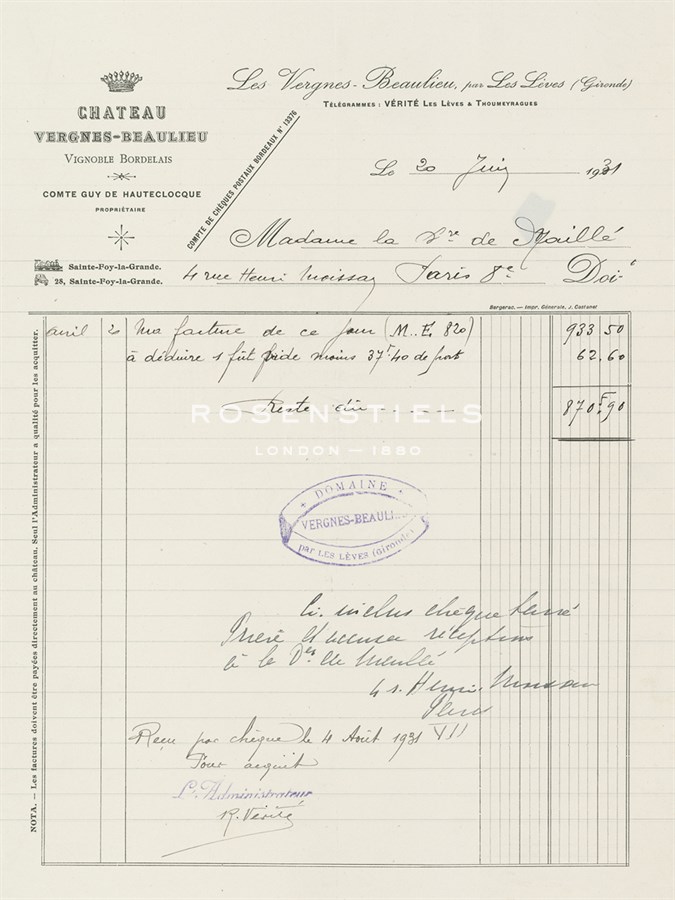 CHATEAU
VERGNES-BEAULIEU
VIGNOBLE BORDELAIS
COMTE GUY DE HAUTECLOCQUE
PROPRIÉTAIRE
Sainte-Foy-la-Grande.
28, Sainte-Foy-la-Grande.
COMPTE DE CHÈQUES POSTAUX BORDEAUX N° 13376
Les Vergnes-Beaulieu, par Les Lèves (Gironde)
TÉLÉGRAMMES : VÉRITÉ LES LÈVES & THOUMEYRAGUES
Le 20 Juin 1931
Madame la de Maillé
4 rue Henri Moissan Paris Doit
Bergerac. — Impr. Générale, J. Castanet
avril 2 Ma facture de ce jour (M.E. 820) 933 50
à déduire 1 fût vide moins 37f.40 de port 62.60
Reste dû 870F.90
ROSENSTIELS
LONDON — 1880
DOMAINE
VERGNES-BEAULIEU
par LES LÈVES (Gironde)
Ci. inclus chèque barré
Prière d'accuser réception
à la de Maillé
4 r. Henri Moissan
Paris VII
Reçu par chèque le 4 Août 1931
Pour acquit
L'Administrateur
R. Vérité
NOTA. — Les factures doivent être payées directement au château. Seul l'Administrateur a qualité pour les acquitter.